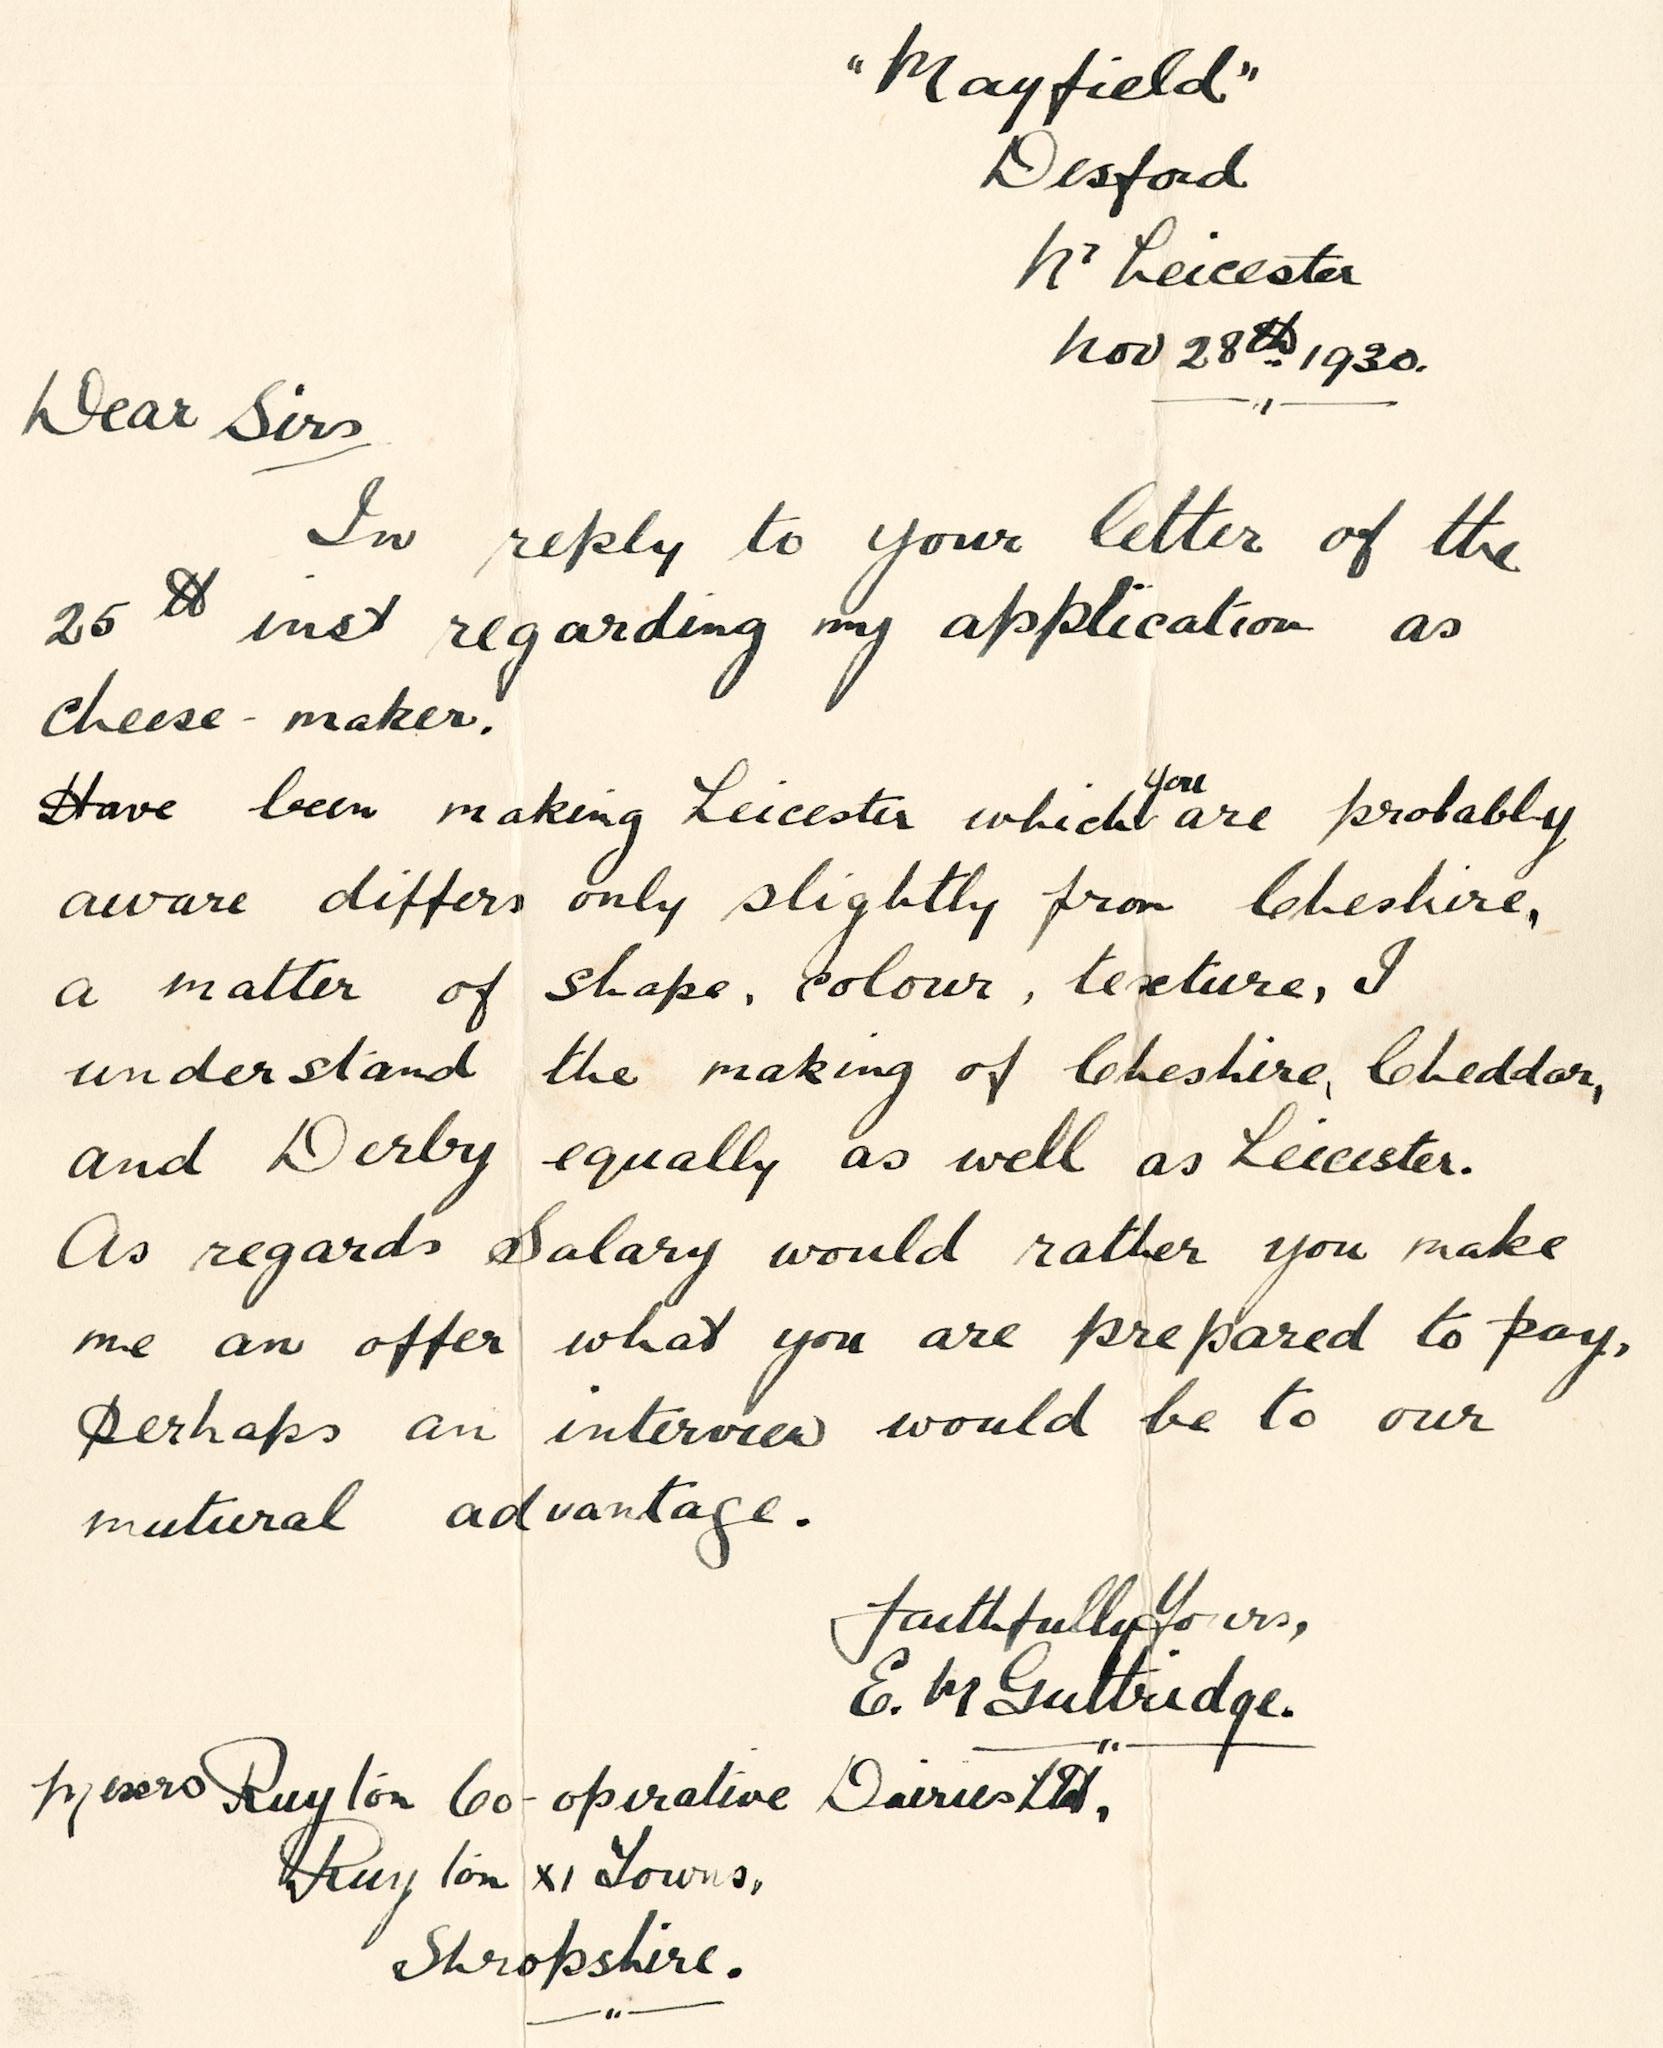 "Mayfield"
Desford
Nr Leicester
Nov 28th 1930.
Dear Sirs
In reply to your letter of the
25th inst regarding my application as
cheese-maker.
Have been making Leicester which you are probably
aware differs only slightly from Cheshire,
a matter of shape, colour, texture, I
understand the making of Cheshire, Cheddar,
and Derby equally as well as Leicester.
As regards Salary would rather you make
me an offer what you are prepared to pay,
Perhaps an interview would be to our
mutural advantage.
Faithfully Yours,
E. M Guttridge.
Messrs Ruyton Co-operative Dairies Ltd,
Ruyton XI Towns,
Shropshire.